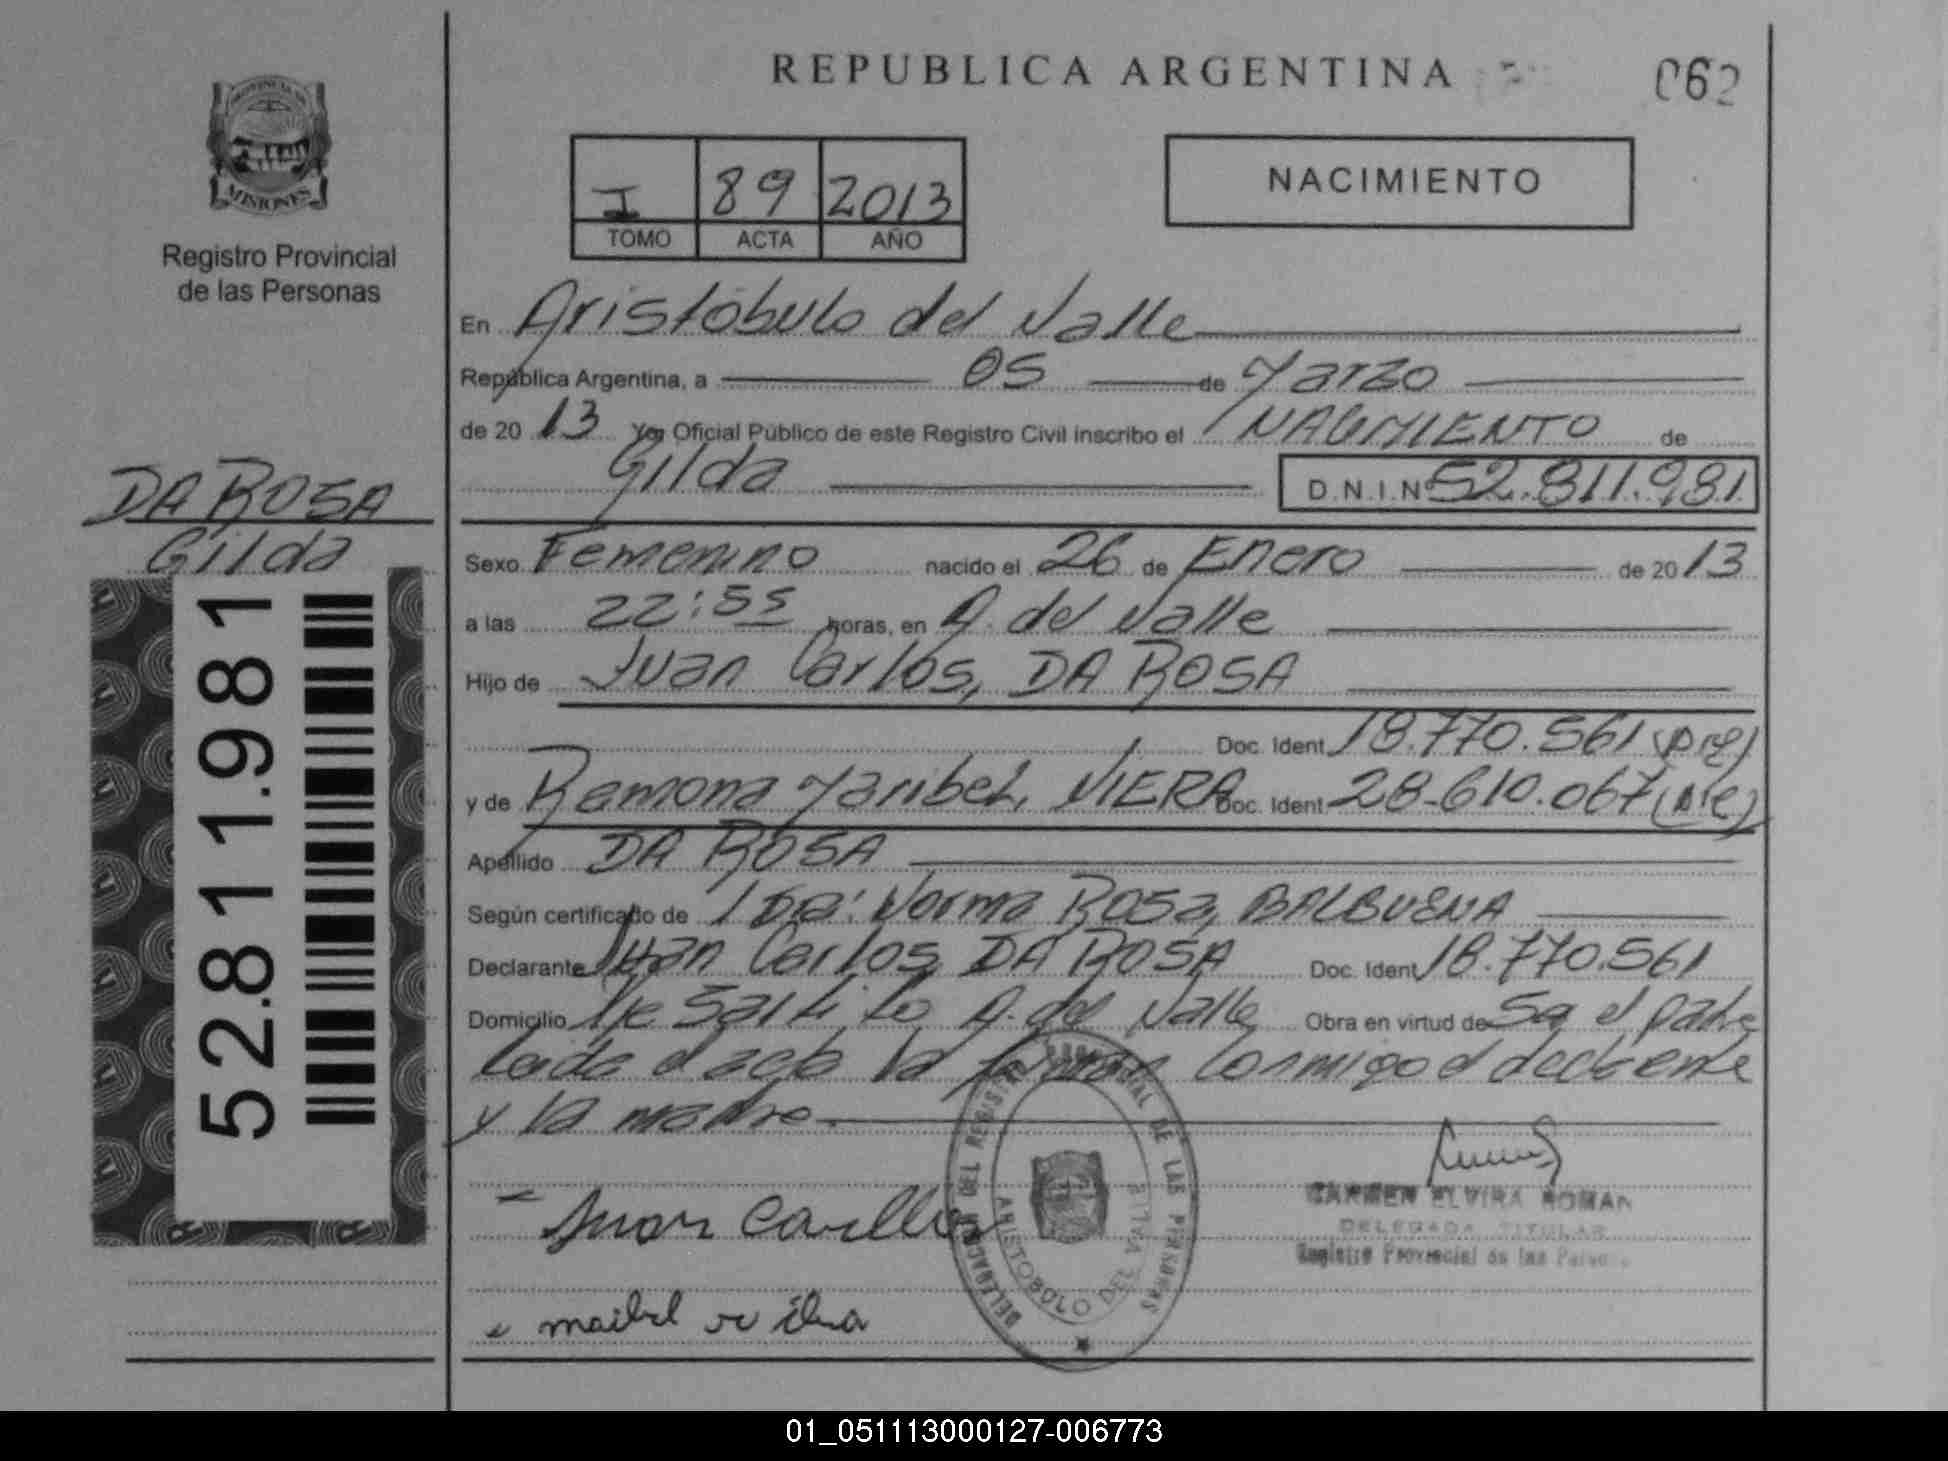 REPUBLICA ARGENTINA
062
PROVINCIA DE
MISIONES
Registro Provincial
de las Personas
I 89 2013
TOMO ACTA AÑO
NACIMIENTO
En Aristóbulo del Valle
República Argentina, a 05 de Marzo
de 20 13 Yo, Oficial Público de este Registro Civil inscribo el NACIMIENTO de
Gilda D.N.I.Nº 52.811.981
DA ROSA
Gilda
52.811.981
Sexo Femenino nacido el 26 de Enero de 20 13
a las 22:55 horas, en A. del Valle
Hijo de Juan Carlos, DA ROSA
Doc. Ident. 18.770.561
y de Ramona Maribel, VIERA Doc. Ident. 28.610.067
Apellido DA ROSA
Según certificado de Norma Rosa, BALBUENA
Declarante Juan Carlos DA ROSA Doc. Ident. 18.770.561
Domicilio Saltito A. del Valle Obra en virtud de el padre
Leida el acta la firman conmigo el
y la madre.
Juan
CARMEN ELVIRA ROMAN
DELEGADA TITULAR
Registro Provincial de las
DELEGACION DEL REGISTRO PROVINCIAL DE LAS PERSONAS
ARISTOBULO DEL VALLE
01_051113000127-006773